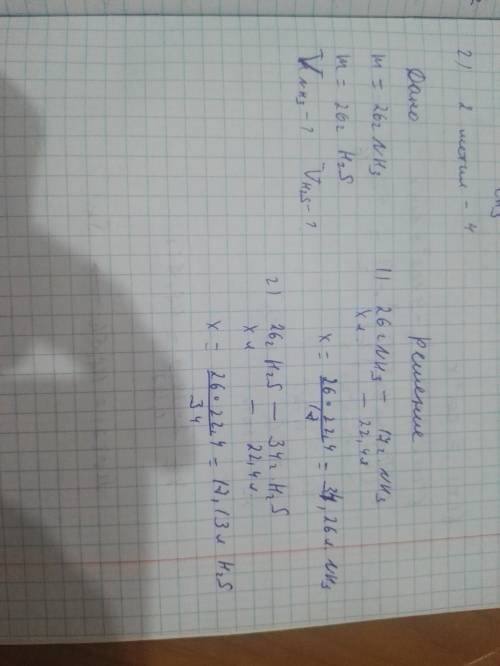 CH3
2) 2 метил - 4
Дано
m = 26г NH3
m = 26г H2S
V NH3 - ? V H2S - ?
решение
1) 26г NH3 - 17г NH3
x л - 22,4л
x = 26 · 22,4 / 17 = 34,26л NH3
2) 26г H2S - 34г H2S
x л - 22,4л.
x = 26 · 22,4 / 34 = 17,13л H2S